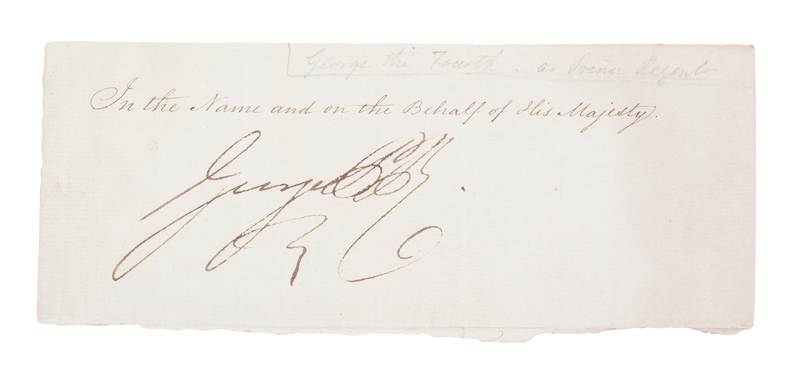 George the Fourth. as Prince Regent
In the Name and on the Behalf of His Majesty.
George P R